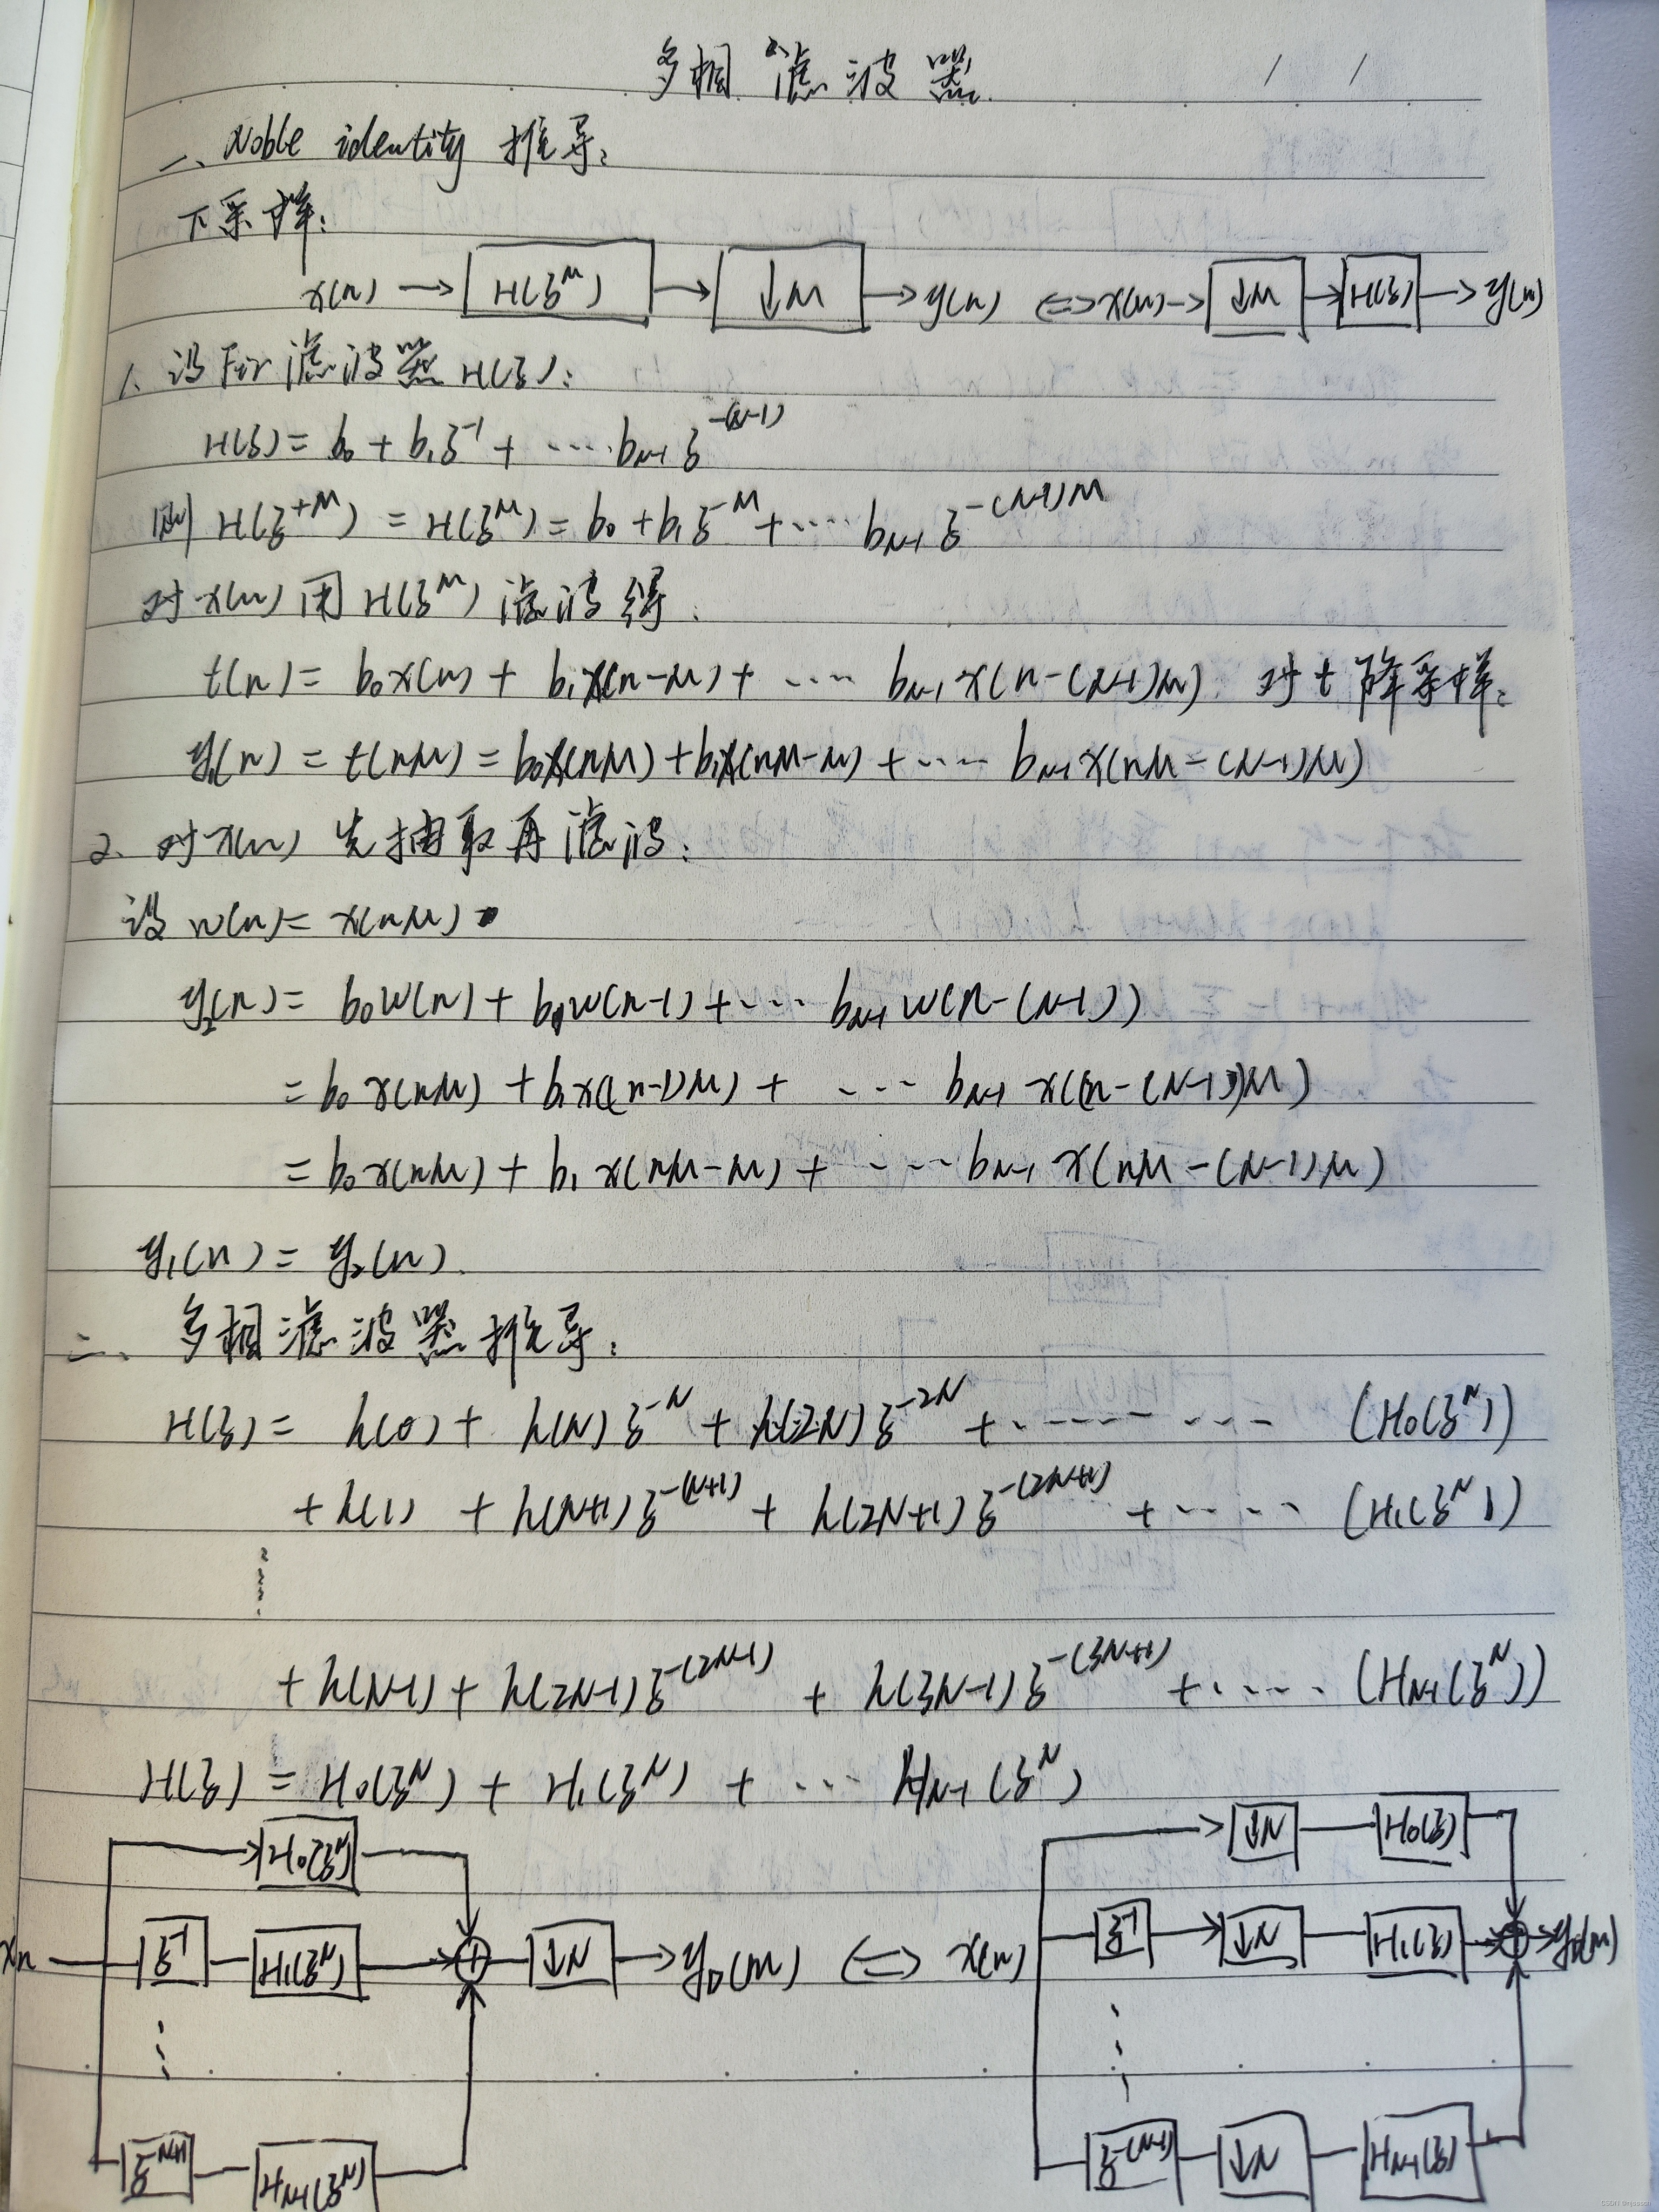 多相滤波器
/ /
一、Noble identity 推导:
下采样:
x(n) → H(z^M) → ↓M → y(n) ⇔ x(n) → ↓M → H(z) → y(n)
1、设Fir滤波器 H(z):
H(z) = b₀ + b₁z^-1 + ···· b_{N-1} z^-(N-1)
则 H(z^+M) = H(z^M) = b₀ + b₁z^-M + ···· b_{N-1} z^-(N-1)M
对 x(n) 用 H(z^M) 滤波得:
t(n) = b₀x(n) + b₁x(n-M) + ···· b_{N-1} x(n-(N-1)M) 对 t 降采样:
y₁(n) = t(nM) = b₀x(nM) + b₁x(nM-M) + ···· b_{N-1} x(nM-(N-1)M)
2、对 x(n) 先抽取再滤波:
设 w(n) = x(nM)
y₂(n) = b₀w(n) + b₁w(n-1) + ···· b_{N-1} w(n-(N-1))
= b₀x(nM) + b₁x((n-1)M) + ···· b_{N-1} x((n-(N-1))M)
= b₀x(nM) + b₁x(nM-M) + ···· b_{N-1} x(nM-(N-1)M)
y₁(n) = y₂(n).
二、多相滤波器推导:
H(z) = h(0) + h(N)z^-N + h(2N)z^-2N + ········ (H₀(z^N))
+ h(1) + h(N+1)z^-(N+1) + h(2N+1)z^-(2N+1) + ····· (H₁(z^N))
+ h(N-1) + h(2N-1)z^-(2N-1) + h(3N-1)z^-(3N+1) + ····· (H_{N-1}(z^N))
H(z) = H₀(z^N) + H₁(z^N) + ··· H_{N-1}(z^N)
H₀(z^N) ↓N H₀(z)
xn z^-1 H₁(z^N) + ↓N → y_D(m) ⇔ x(n) z^-1 ↓N H₁(z) + y_D(m)
z^-N+1 H_{N-1}(z^N) z^-(N-1) ↓N H_{N-1}(z)